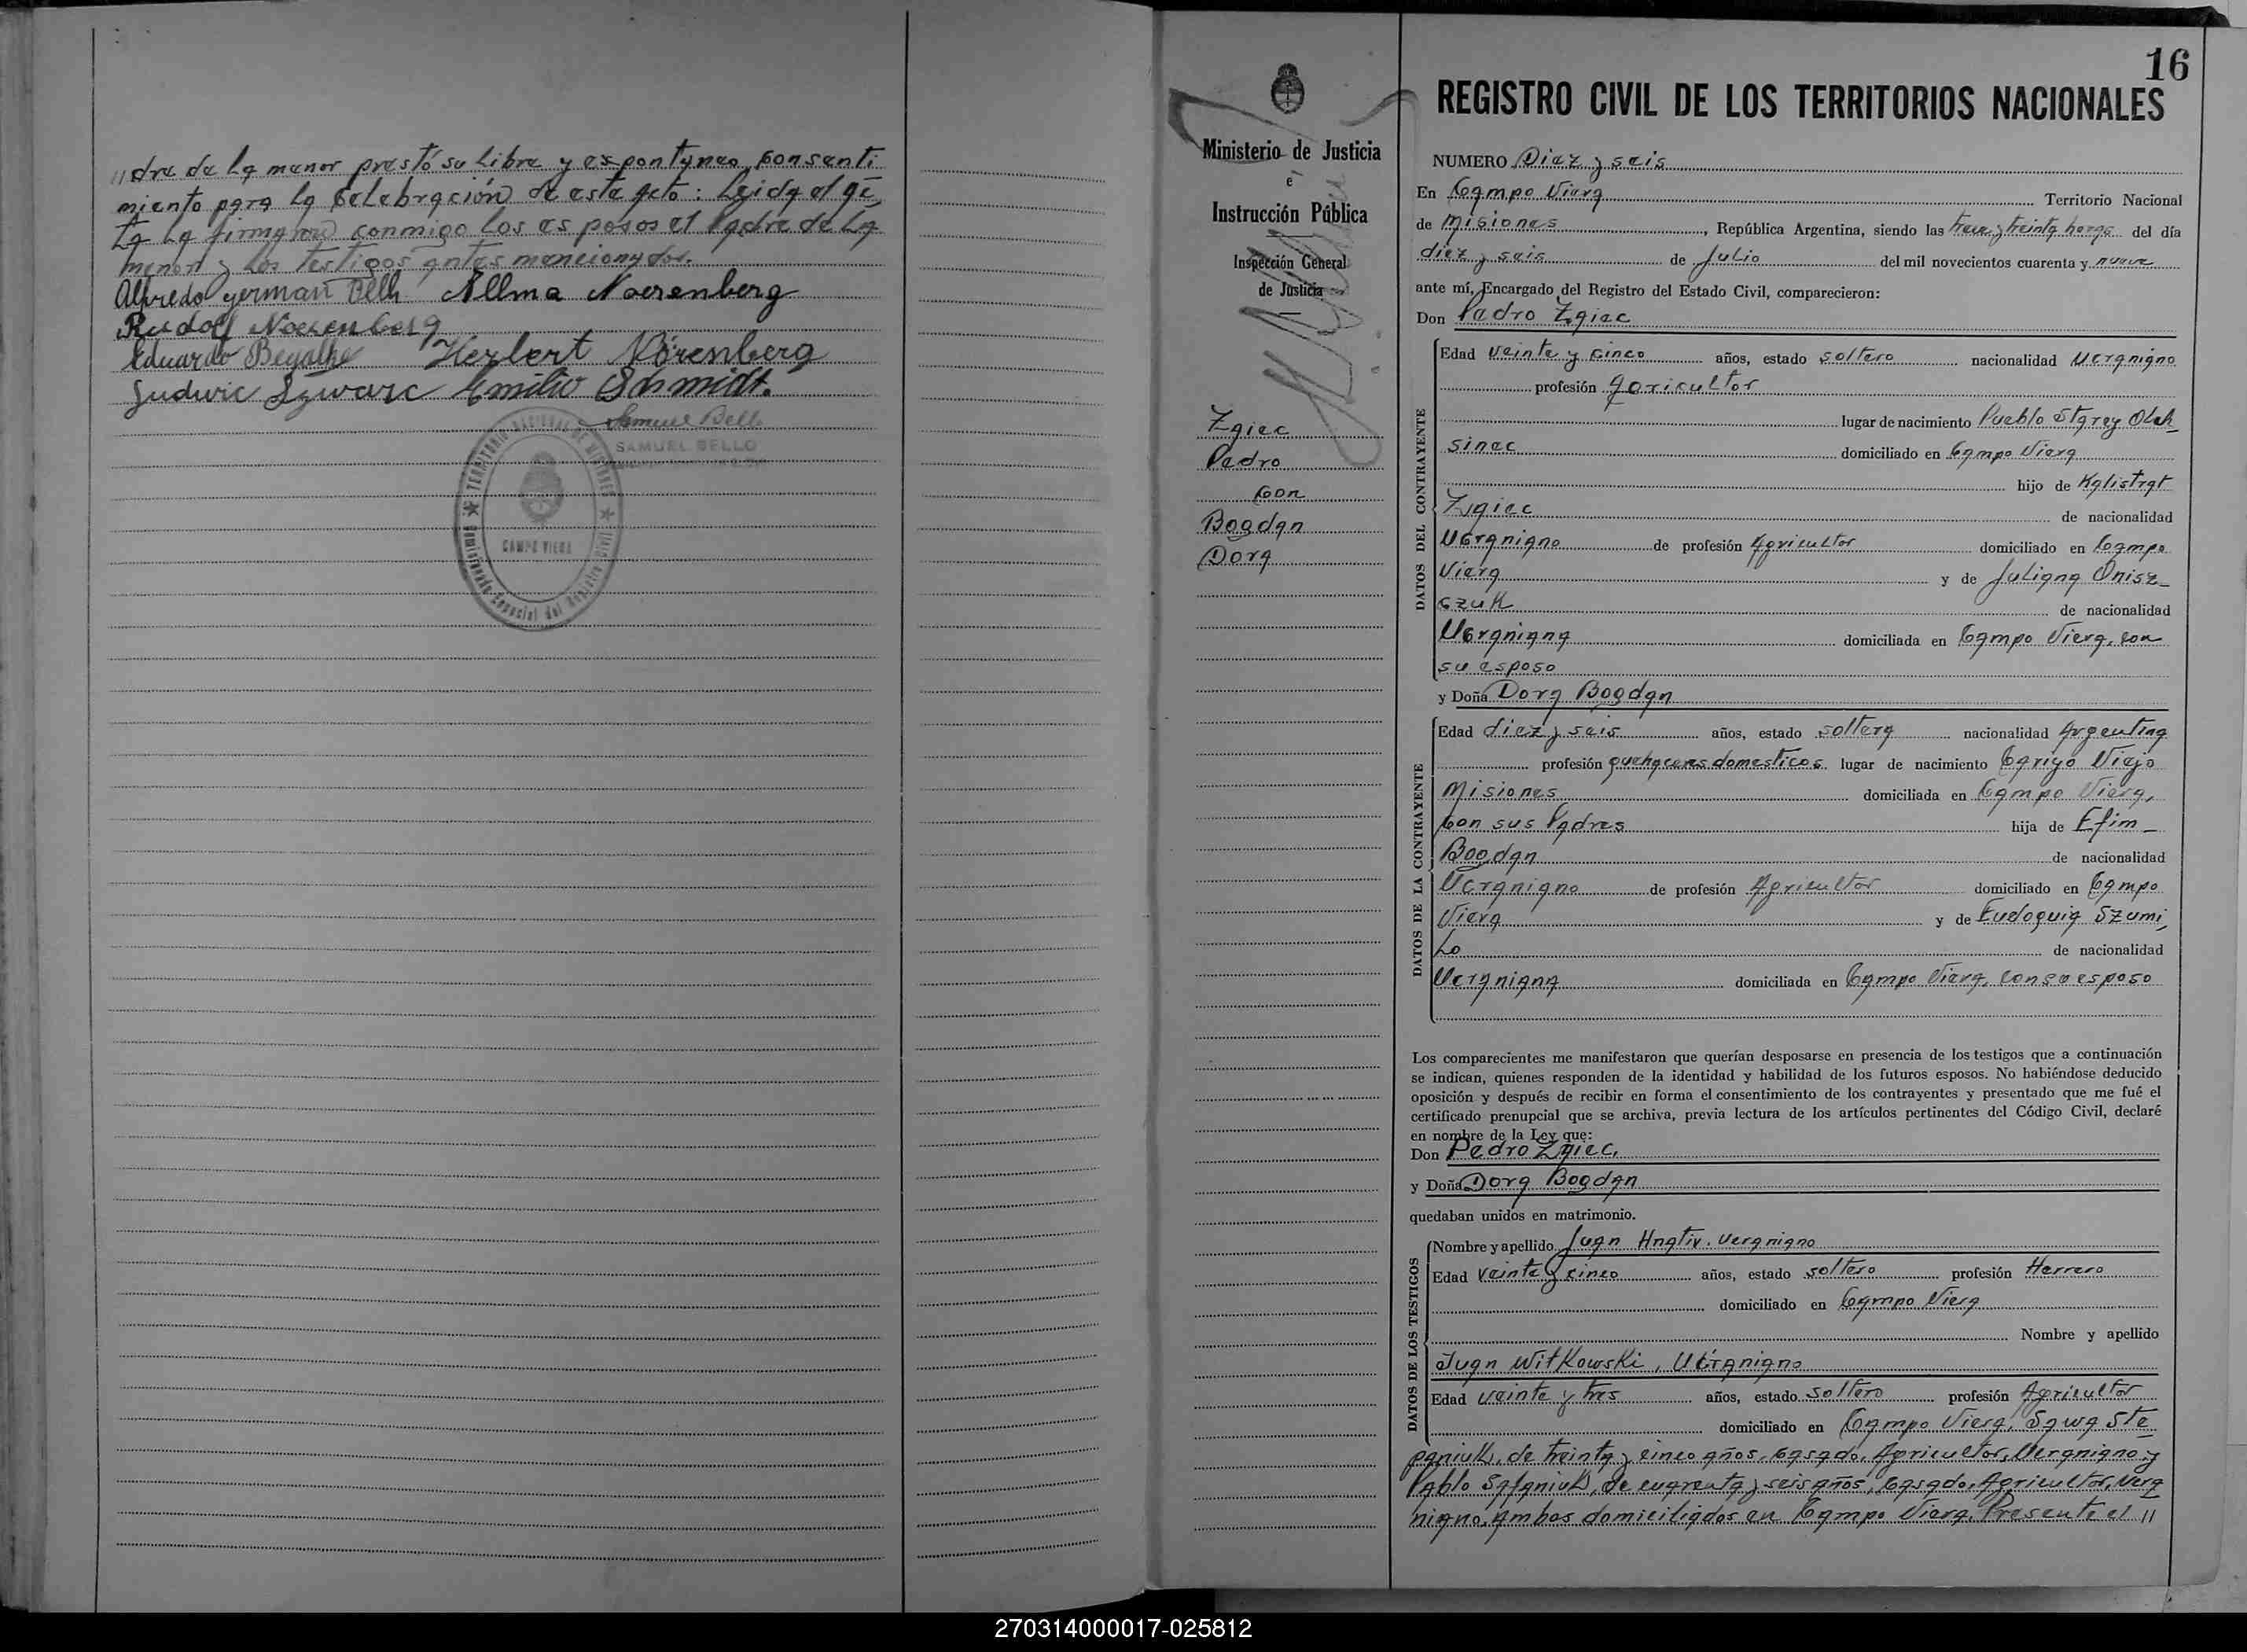 "dre de la menor prestó su libre y espontaneo consenti
miento para la Celebración de este acto: Leida el ac
ta la firmaron conmigo los esposos el Padre de la
menor y los testigos antes mencionados.
Alfredo german Allma Noerenberg
Rudolf Noerenberg
Eduardo Herbert Nörenberg
Ludwic Szwarc Emilio Schmidt.
Samuel Bello
SAMUEL BELLO
TERRITORIO NACIONAL DE MISIONES
CAMPO VIERA
Comisionado Especial del Registro Civil
16
Ministerio de Justicia
e
Instrucción Pública
Inspección General
de Justicia
Zaiec
Pedro
Con
Bogdan
Dora
REGISTRO CIVIL DE LOS TERRITORIOS NACIONALES
NUMERO Diez y seis
En Campo Viera Territorio Nacional
de Misiones, República Argentina, siendo las trece y treinta horas del día
diez y seis de Julio del mil novecientos cuarenta y nueve
ante mí, Encargado del Registro del Estado Civil, comparecieron:
Don Pedro Zaiec
DATOS DEL CONTRAYENTE
Edad veinte y cinco años, estado soltero nacionalidad Ucraniano
profesión Agricultor
lugar de nacimiento Pueblo Starey Oleh
sinec domiciliado en Campo Viera
hijo de Kalistrat
Zaiec de nacionalidad
Ucraniano de profesión Agricultor domiciliado en Campo
Viera y de Juliana Onisz-
czuk de nacionalidad
Ucraniana domiciliada en Campo Viera, con
su esposo
y Doña Dora Bogdan
DATOS DE LA CONTRAYENTE
Edad diez y seis años, estado soltera nacionalidad Argentina
profesión quehaceres domesticos lugar de nacimiento Cariyo Viejo
Misiones domiciliada en Campo Viera,
Con sus Padres hija de Efim -
Bogdan de nacionalidad
Ucraniano de profesión Agricultor domiciliado en Campo
Viera y de Eudoquia Szumi,
Lo de nacionalidad
Ucraniana domiciliada en Campo Viera, con su esposo
Los comparecientes me manifestaron que querían desposarse en presencia de los testigos que a continuación
se indican, quienes responden de la identidad y habilidad de los futuros esposos. No habiéndose deducido
oposición y después de recibir en forma el consentimiento de los contrayentes y presentado que me fué el
certificado prenupcial que se archiva, previa lectura de los artículos pertinentes del Código Civil, declaré
en nombre de la Ley que:
Don Pedro Zaiec,
y Doña Dora Bogdan
quedaban unidos en matrimonio.
DATOS DE LOS TESTIGOS
Nombre y apellido Juan Hnativ. Ucraniano
Edad veinte y cinco años, estado soltero profesión Herrero
domiciliado en Campo Viera
Nombre y apellido
Juan Witkowski, Ucraniano
Edad veinte y tres años, estado soltero profesión Agricultor
domiciliado en Campo Viera, Sawa Ste
paniuk, de treinta y cinco años, Casado, Agricultor, Ucraniano y
Pablo Safaniuk, de cuarenta y seis años, Casado, Agricultor, Ucra
niano, Ambos domiciliados en Campo Viera. Presente el "
270314000017-025812